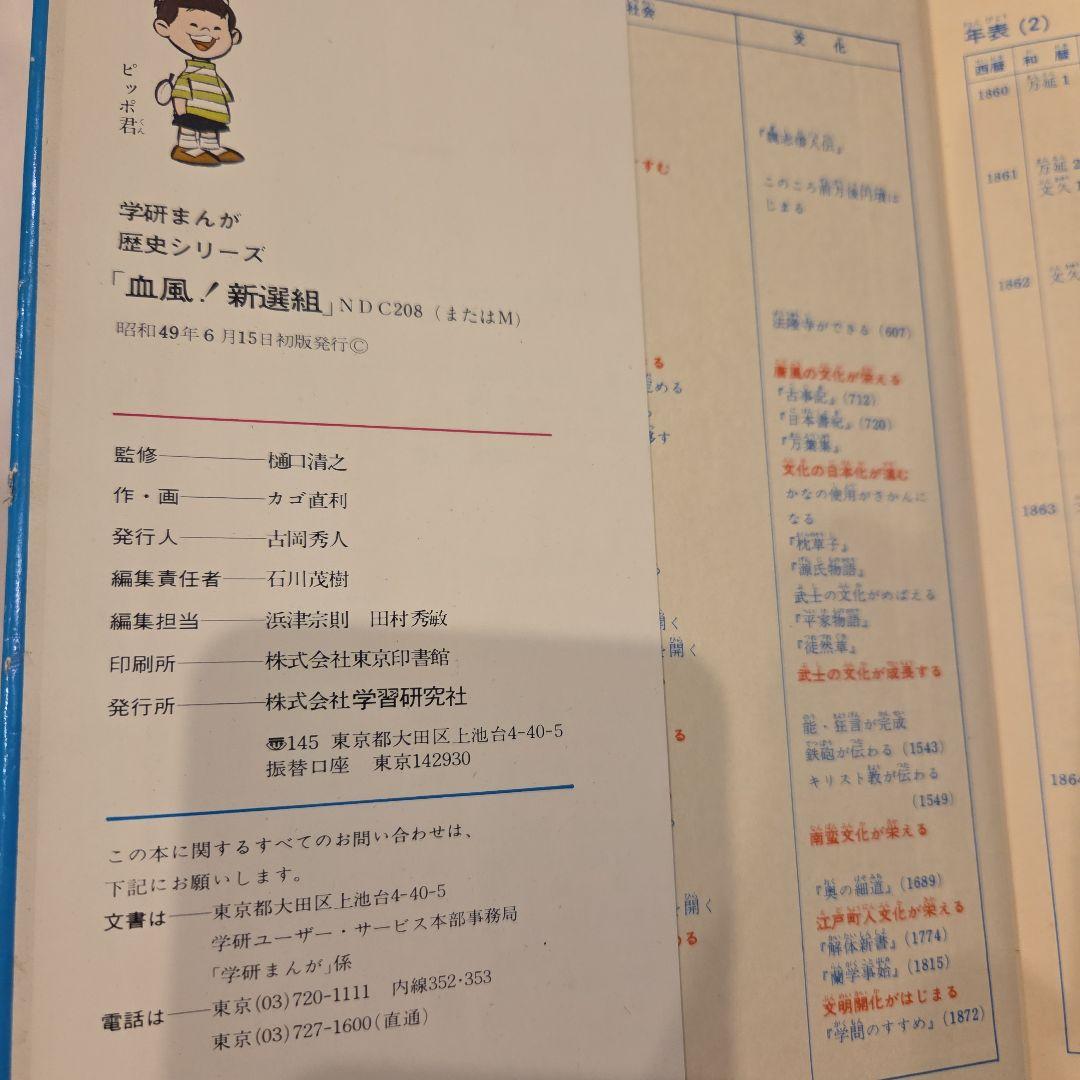 ピッポ君
くん
学研まんが
歴史シリーズ
「血風！新選組」NDC208（またはM）
昭和49年6月15日初版発行©
監修―――樋口清之
作・画―――カゴ直利
発行人―――古岡秀人
編集責任者――石川茂樹
編集担当――浜津宗則　田村秀敏
印刷所―――株式会社東京印書館
発行所―――株式会社学習研究社
〠145　東京都大田区上池台4-40-5
振替口座　東京142930
この本に関するすべてのお問い合わせは、
下記にお願いします。
文書は――東京都大田区上池台4-40-5
学研ユーザー・サービス本部事務局
「学研まんが」係
電話は――東京(03)720-1111　内線352・353
東京(03)727-1600(直通)
社会
文化
すむ
『魏志倭人伝』
このころ前方後円墳は
じまる
法隆寺ができる (607)
る
唐風の文化が栄える
定める
『古事記』(712)
『日本書紀』(720)
移す
『万葉集』
文化の日本化が進む
かなの使用がさかんに
なる
『枕草子』
『源氏物語』
武士の文化がめばえる
開く
『平家物語』
を開く
『徒然草』
武士の文化が成長する
能・狂言が完成
る
鉄砲が伝わる (1543)
キリスト教が伝わる
(1549)
南蛮文化が栄える
『奥の細道』(1689)
を開く
江戸町人文化が栄える
『解体新書』(1774)
る
『蘭学事始』(1815)
文明開化がはじまる
『学問のすすめ』(1872)
年表 (2)
西暦　和暦
1860　万延1
1861　万延2
文久1
1862　文久
1863
1864